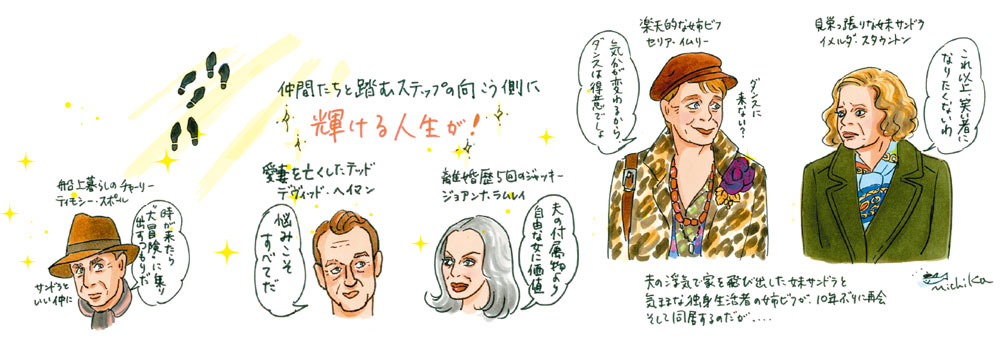 仲間たちと踏むステップの向こう側に
輝ける人生が!
船上暮らしのチャーリー
ティモシー・スポール
時が来たら
“大冒険”に乗り
出すつもりだ
サンドラと
いい仲に
愛妻を亡くしたテッド
デヴィッド・ヘイマン
悩みこそ
すべてだ
離婚歴5回のジャッキー
ジョアンナ・ラムレイ
夫の付属物より
自由な女に価値
楽天的な姉ビフ
セリア・イムリー
気分が変わるから、
ダンスは得意でしょ
ダンスに
来ない?
見栄っ張りな妹サンドラ
イメルダ・スタウントン
これ以上、笑い者に
なりたくないわ
夫の浮気で家を飛び出した妹サンドラと
気ままな独身生活者の姉ビフが、10年ぶりに再会
そして同居するのだが....
michika